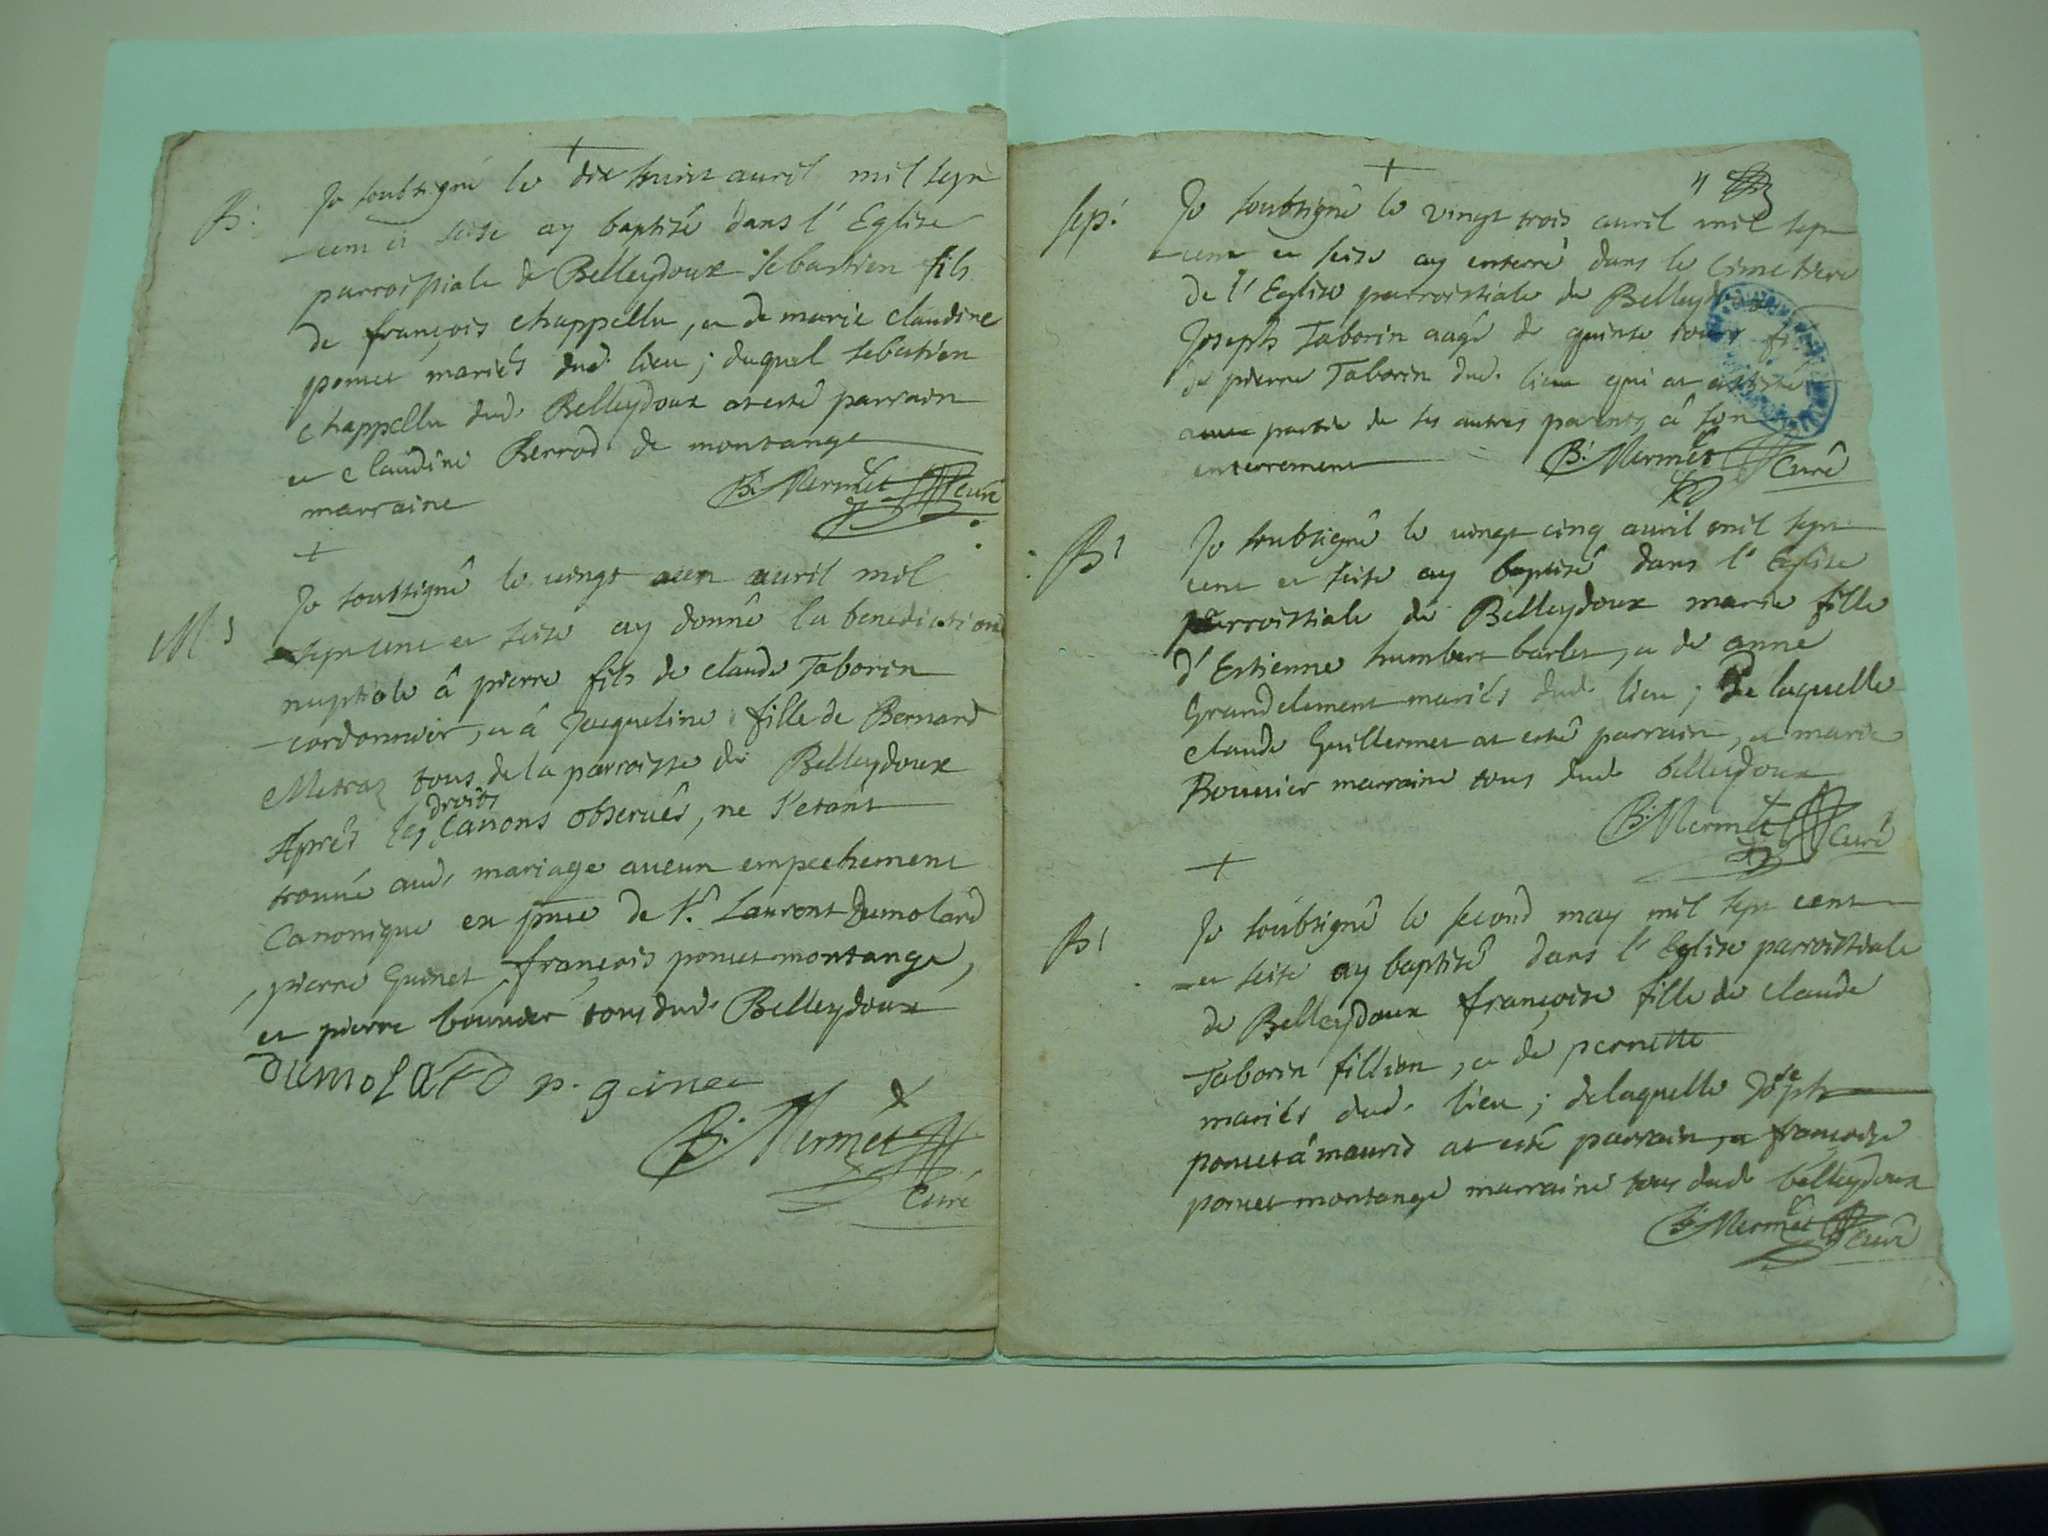 +
B. Je soubsigné le dix huict auril mil sept
cent et seise ay baptisé dans l'Eglise
parroissiale de Belleydoux Sebastien fils
de françois chappellu, et de marie claudine
poncet mariés dud. lieu; duquel sebastien
chappellu dud. Belleydoux at esté parrain
et claudine Berrod de montange
marraine B. Mermet Curé
+
M. Je soubsigné le vingt auril mil
sept cent et seise ay donné la benediction
nuptiale â pierre fils de claude Taborin
cordonnier, et â Jacqueline fille de Bernard
Metraz tous de la parroisse de Belleydoux
Aprés les droits Canons obserués, ne s'etant
trouué aud. mariage aucun empechement
Canonique en pnce de Sr. Laurent Dumolard
pierre Guinet, françois poncet montange,
et pierre bouuier tous dud. Belleydoux
DumolARD p. ginet
B. Mermet
Curé
+
4
sep. Je soubsigné le vingt trois auril mil sept
cent et seise ay enterré dans le Cimetiere
de l'Eglise parroissiale de Belleydoux
Joseph Taborin aagé de quinse jours fils
de pierre Taborin dud. lieu qui at assisté
auec partie de ses autres parents â son
enterrement B. Mermet Curé
B. Je soubsigné le vingt cinq auril mil sept
cent et seise ay baptisé dans l'Eglise
parroissiale de Belleydoux marie fille
d'Estienne humbert barlet, et de anne
Grandclement mariés dud. lieu; de laquelle
claude Guillermet at esté parrain, et marie
Bouuier marraine tous dud. belleydoux
B. Mermet Curé
+
B. Je soubsigné le second may mil sept cent
et seise ay baptisé dans l'Eglise parroissiale
de Belleydoux françoise fille de claude
Taborin fillion, et de pernette
mariés dud. lieu; de laquelle Joseph
poncet â maurid at esté parrain, et françoise
poncet montange marraine tous dud. belleydoux
B. Mermet Curé